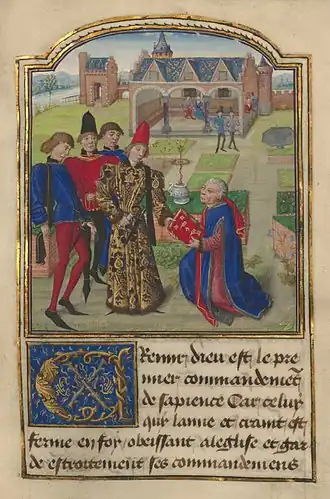 Cremir dieu est le pre
mier commandemēt
de sapience Car celuy
qui lamie et cramt est
ferme en foy obeissant a leglise et gar
de estroittement ses commandemens